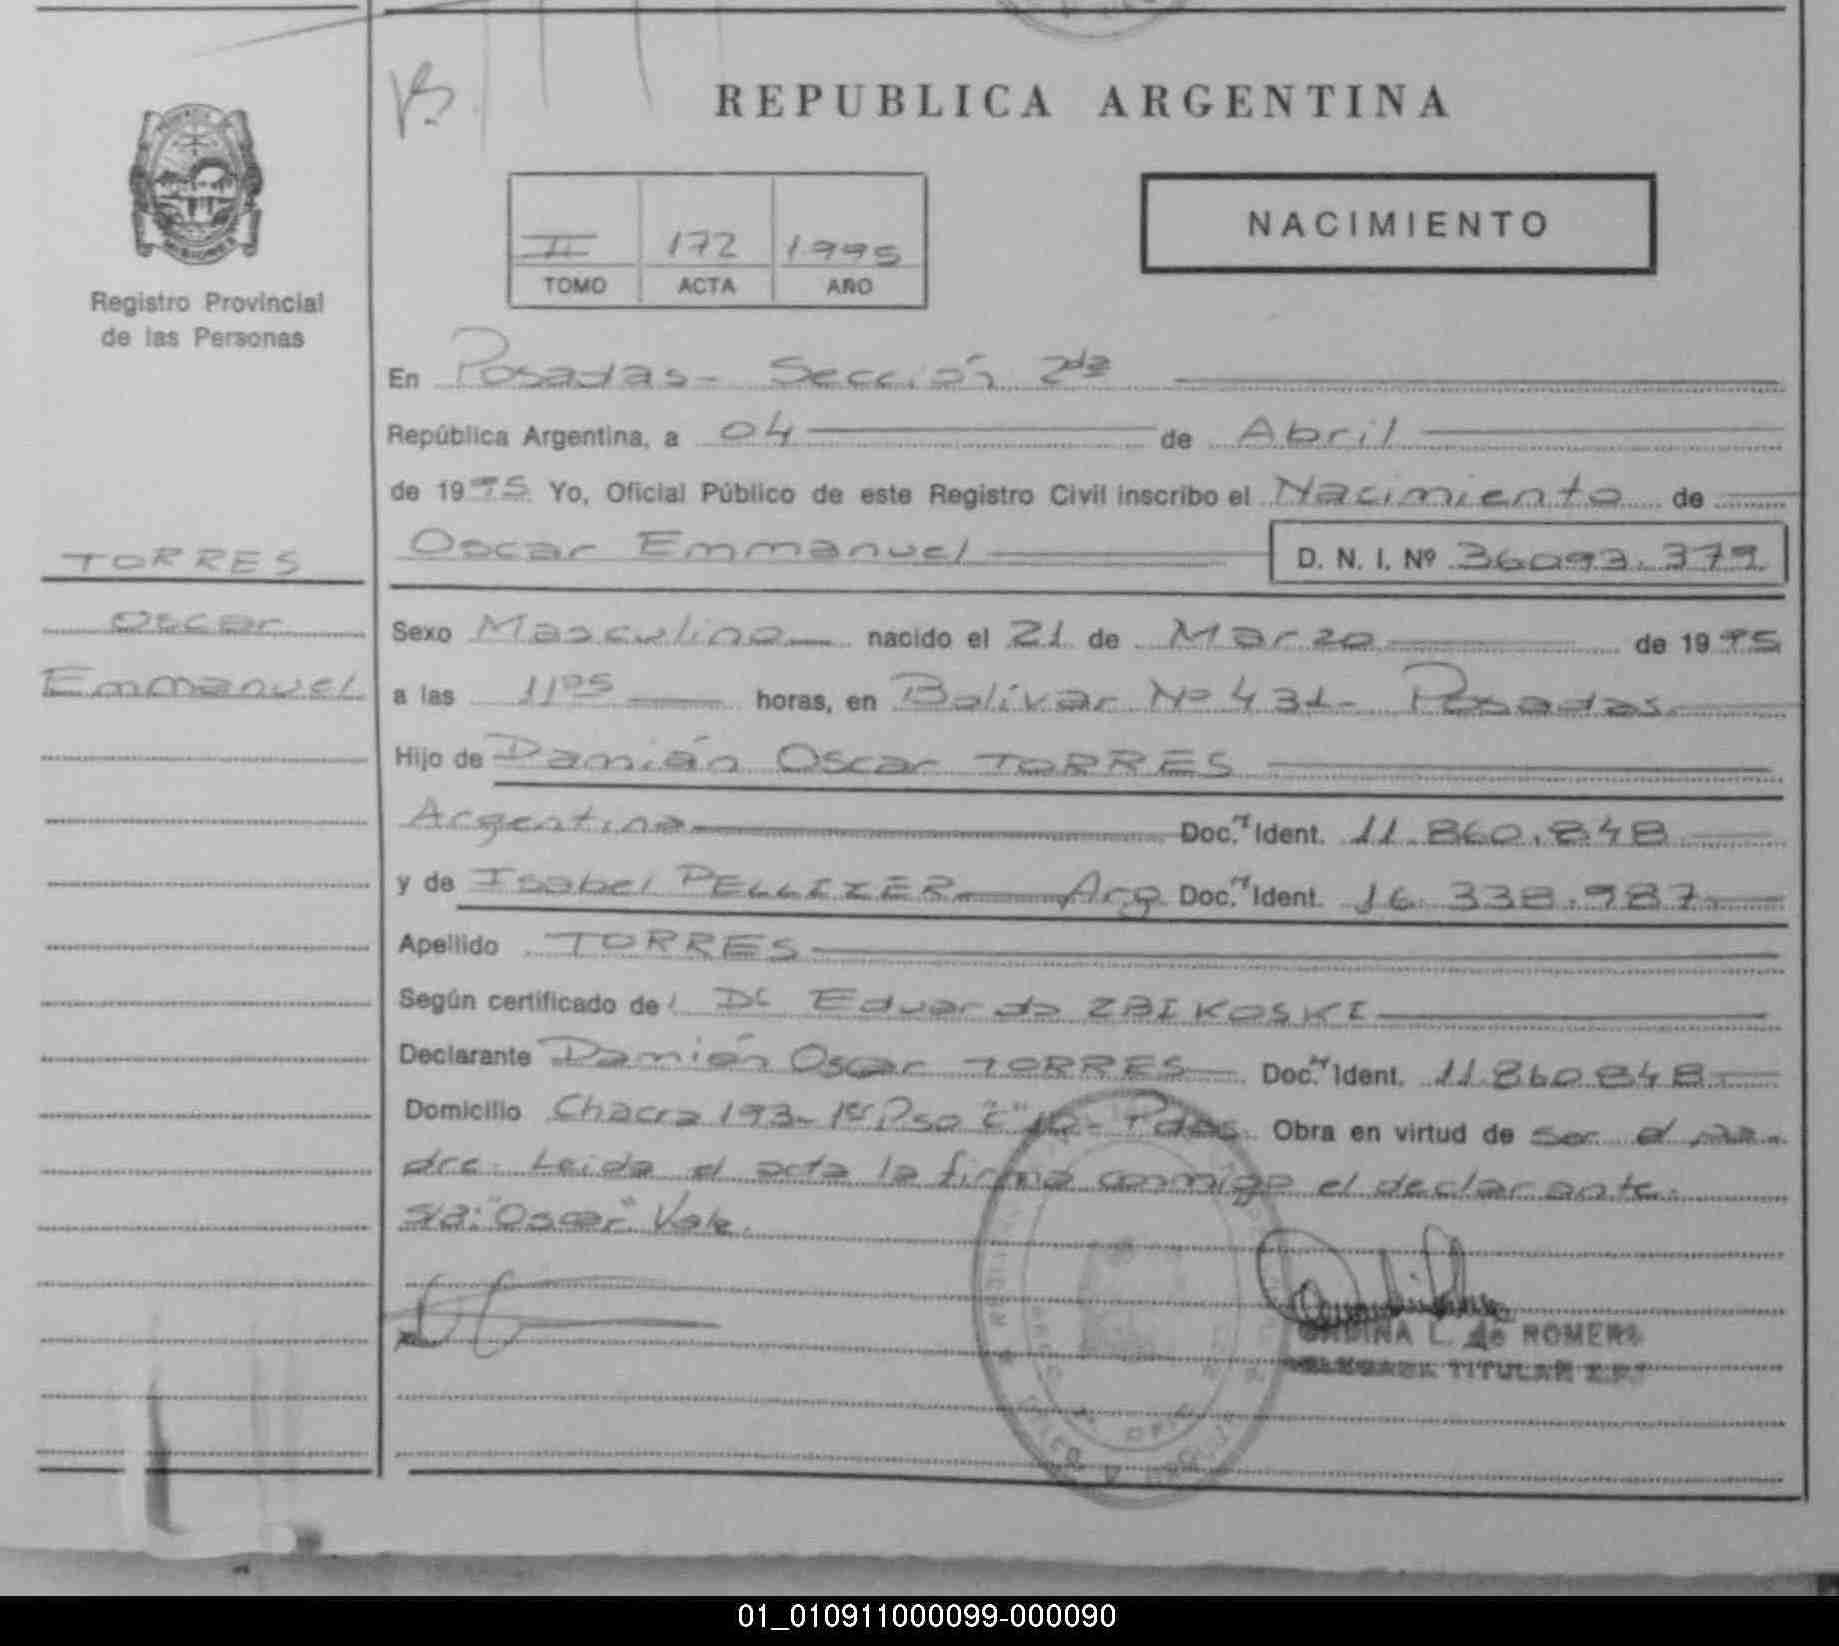 REPUBLICA ARGENTINA
NACIMIENTO
II 172 1995
TOMO ACTA AÑO
Registro Provincial
de las Personas
En Posadas - Sección 2da
República Argentina, a 04 de Abril
de 1995 Yo, Oficial Público de este Registro Civil inscribo el Nacimiento de
Oscar Emmanuel D. N. I. Nº 36093.379
TORRES
Oscar
Emmanuel
Sexo Masculino nacido el 21 de Marzo de 1995
a las 11 05 horas, en Bolívar Nº 431 - Posadas
Hijo de Damián Oscar TORRES
Argentina Doc. Ident. 11.860.848
y de Isabel PELLIZER Arg Doc. Ident. 16.338.987
Apellido TORRES
Según certificado de Dr Eduardo ZBIKOSKI
Declarante Damián Oscar TORRES Doc. Ident. 11.860.848
Domicilio Chacra 193 - 1er Piso "C" 10 - Pdas. Obra en virtud de ser el pa-
dre. Leida el acta la firma conmigo el declarante.
S/a: "Oscar" Vale.
L. de ROMERO
TITULAR
01_010911000099-000090